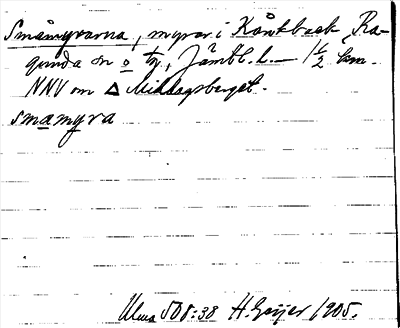 Småmyrarna, myrar i Kånkback, Ra-
gunda sn o tg, Jämtl. l. – 1½ km.
NNV om Δ Middagsberget.
småmyra
Ulma 508:38 H. Geijer 1905.